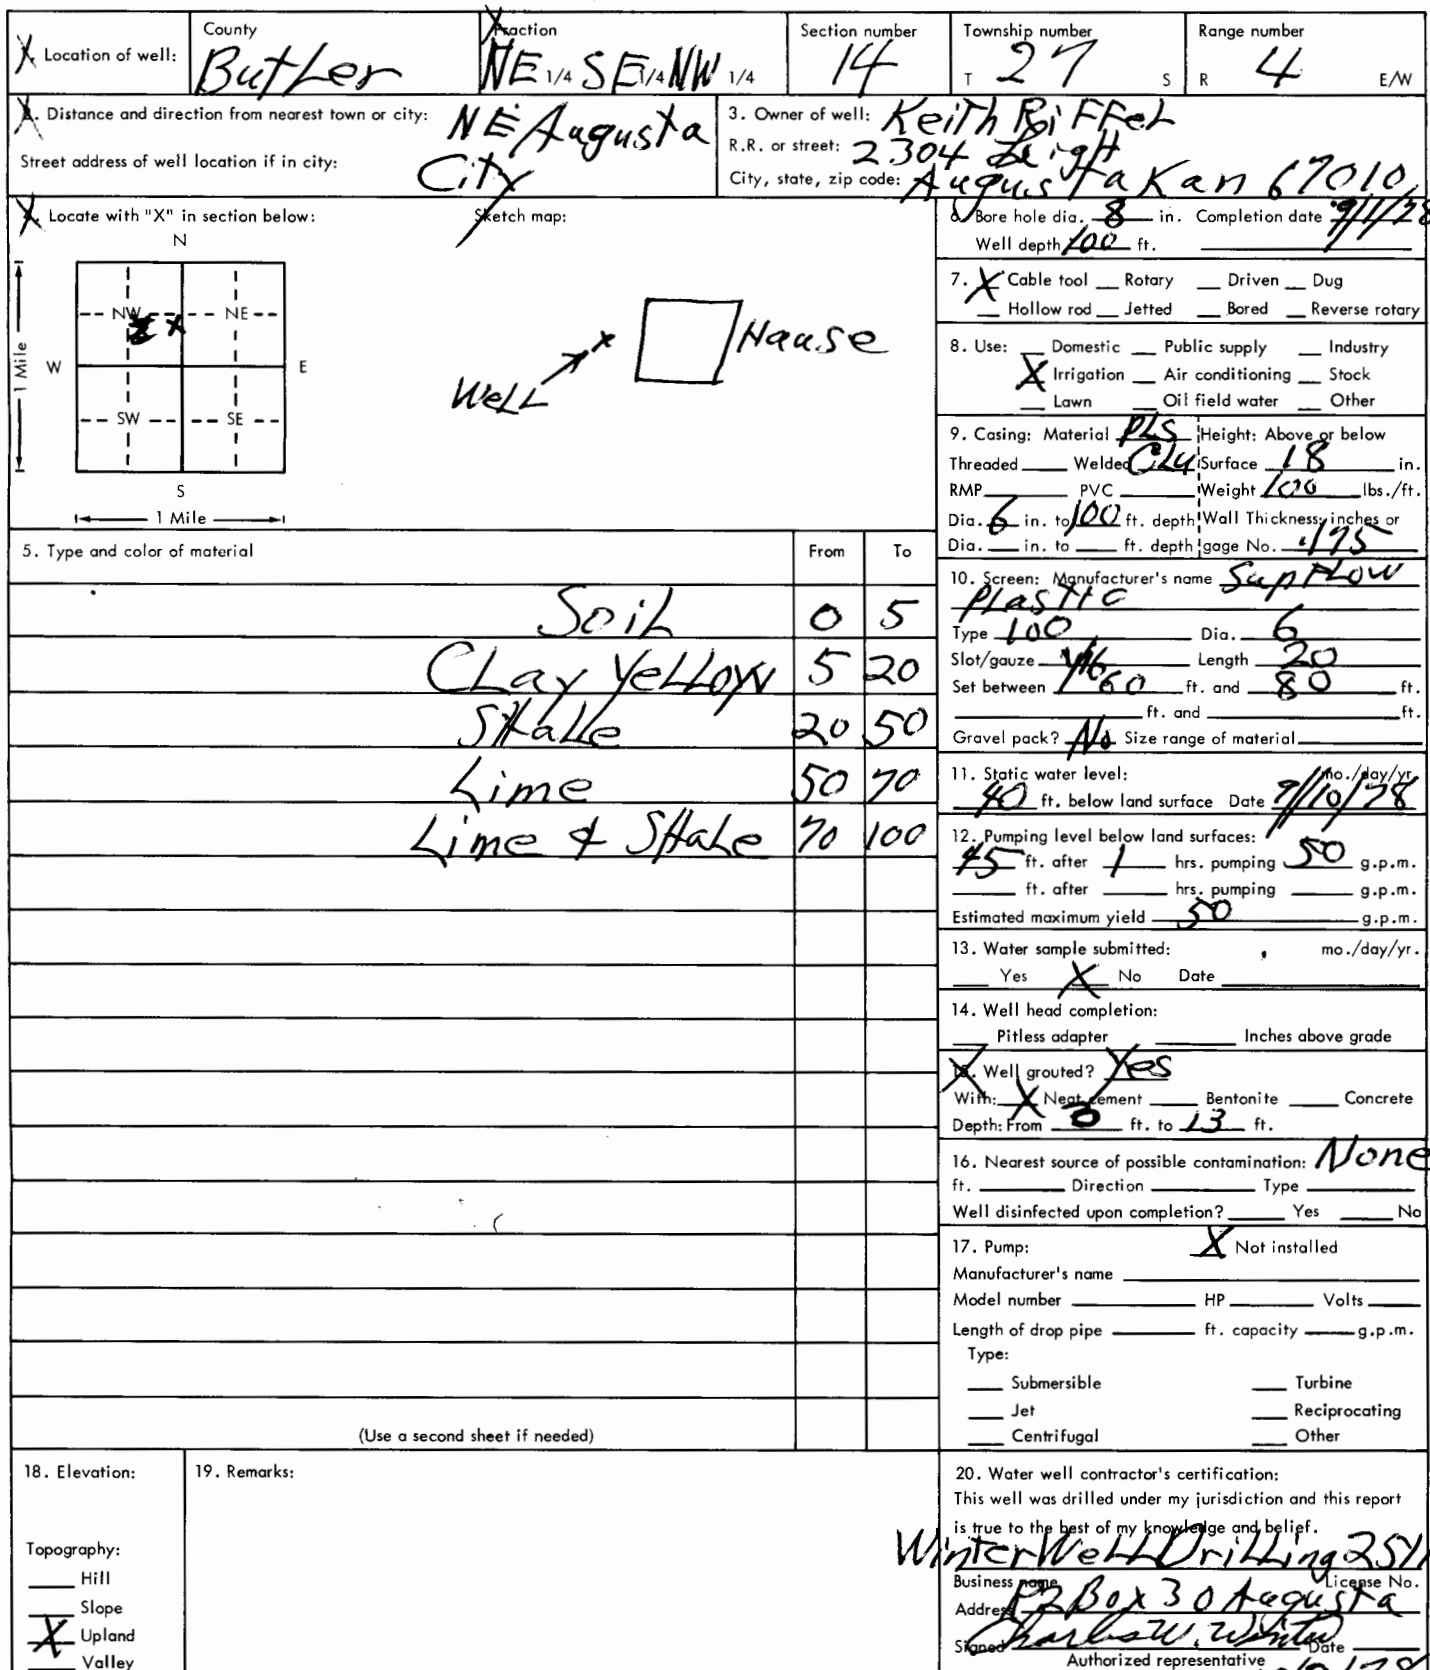 County Fraction Section number Township number Range number
Location of well: Butler NE 1/4 SE 1/4 NW 1/4 14 T 27 S R 4 E/W
2. Distance and direction from nearest town or city: NE Augusta
Street address of well location if in city: City
3. Owner of well: Keith Riffel
R.R. or street: 2304 Leigh
City, state, zip code: Augusta Kan 67010
4. Locate with "X" in section below: Sketch map:
N
NW NE
W E
SW SE
S
1 Mile
1 Mile
X X
House
Well
5. Type and color of material From To
Soil 0 5
Clay Yellow 5 20
Shale 20 50
Lime 50 70
Lime & Shale 70 100
(Use a second sheet if needed)
6. Bore hole dia. 8 in. Completion date 9/11/78
Well depth 100 ft.
7. X Cable tool Rotary Driven Dug
Hollow rod Jetted Bored Reverse rotary
8. Use: Domestic Public supply Industry
X Irrigation Air conditioning Stock
Lawn Oil field water Other
9. Casing: Material PLS Height: Above or below
Threaded Welded Glu Surface 18 in.
RMP PVC Weight 100 lbs./ft.
Dia. 6 in. to 100 ft. depth Wall Thickness: inches or
Dia. in. to ft. depth gage No. .175
10. Screen: Manufacturer's name SunFlow
Plastic
Type 100 Dia. 6
Slot/gauze 1/16 Length 20
Set between 60 ft. and 80 ft.
ft. and ft.
Gravel pack? No Size range of material
11. Static water level: mo./day/yr.
40 ft. below land surface Date 9/10/78
12. Pumping level below land surfaces:
45 ft. after 1 hrs. pumping 50 g.p.m.
ft. after hrs. pumping g.p.m.
Estimated maximum yield 50 g.p.m.
13. Water sample submitted: mo./day/yr.
Yes X No Date
14. Well head completion:
Pitless adapter Inches above grade
15. Well grouted? Yes
With: X Neat cement Bentonite Concrete
Depth: From 0 ft. to 13 ft.
16. Nearest source of possible contamination: None
ft. Direction Type
Well disinfected upon completion? Yes No
17. Pump: X Not installed
Manufacturer's name
Model number HP Volts
Length of drop pipe ft. capacity g.p.m.
Type:
Submersible Turbine
Jet Reciprocating
Centrifugal Other
18. Elevation:
Topography:
Hill
Slope
X Upland
Valley
19. Remarks:
20. Water well contractor's certification:
This well was drilled under my jurisdiction and this report
is true to the best of my knowledge and belief.
Winter Well Drilling 251
Business name License No.
Address R2 Box 30 Augusta
Signed Charles W. Winter Date
Authorized representative